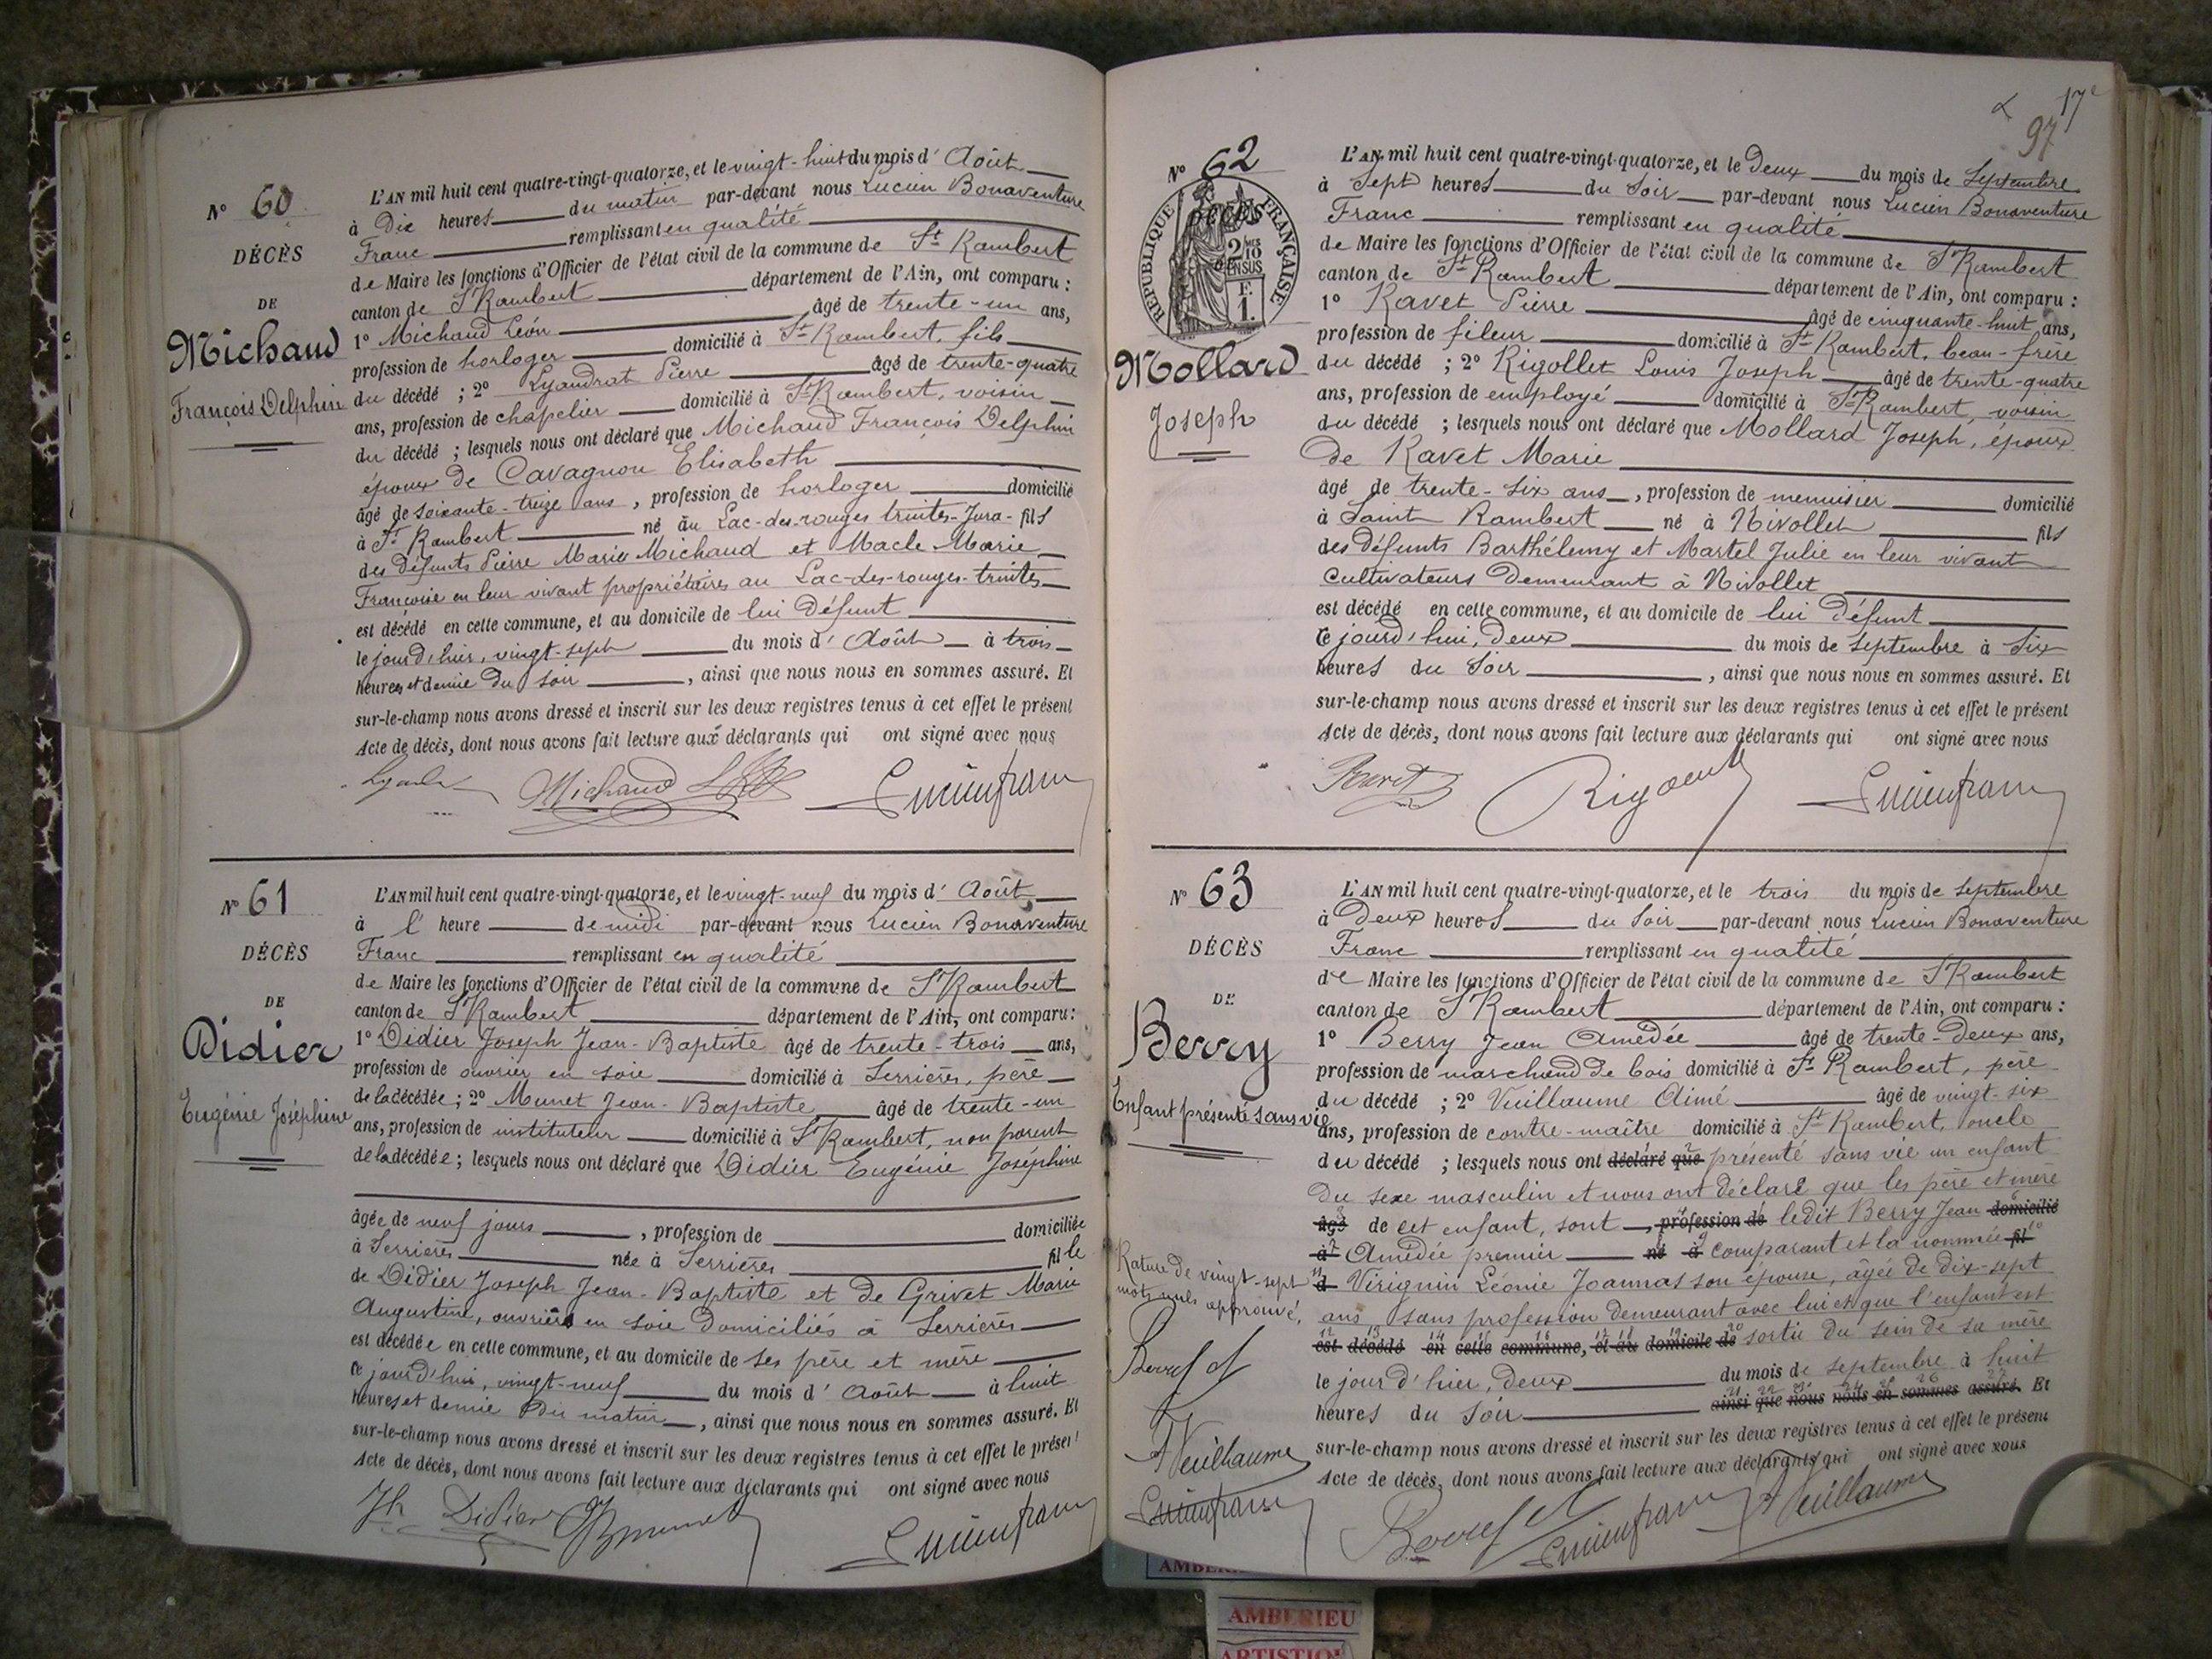 N° 60
DÉCÈS
DE
Michaud
François Delphin
L'AN mil huit cent quatre-vingt-quatorze, et le vingt-huit du mois d' Août
à Dix heures du matin par-devant nous Lucien Bonaventure
Franc remplissant en qualité
de Maire les fonctions d'Officier de l'état civil de la commune de St Rambert
canton de St Rambert département de l'Ain, ont comparu :
1° Michaud Léon âgé de trente-un ans,
profession de horloger domicilié à St Rambert, fils
du décédé ; 2° Lyandrat Pierre âgé de trente-quatre
ans, profession de chapelier domicilié à St Rambert, voisin
du décédé ; lesquels nous ont déclaré que Michaud François Delphin
époux de Cavagnou Elisabeth
âgé de soixante-treize ans, profession de horloger domicilié
à St Rambert né au Lac-des-rouges truites-Jura- fils
des défunts Pierre Marie Michaud et Macle Marie
Françoise en leur vivant propriétaires au Lac-des-rouges-truites
est décédé en cette commune, et au domicile de lui défunt
le jour d'hier, vingt-sept du mois d' Août à trois
heures et demie du soir, ainsi que nous nous en sommes assuré. Et
sur-le-champ nous avons dressé et inscrit sur les deux registres tenus à cet effet le présent
Acte de décès, dont nous avons fait lecture aux déclarants qui ont signé avec nous
Michaud Lucien franc
N° 61
DÉCÈS
DE
Didier
Eugénie Joséphine
L'AN mil huit cent quatre-vingt-quatorze, et le vingt-neuf du mois d' Août
à l' heure de midi par-devant nous Lucien Bonaventure
Franc remplissant en qualité
de Maire les fonctions d'Officier de l'état civil de la commune de St Rambert
canton de St Rambert département de l'Ain, ont comparu :
1° Didier Joseph Jean-Baptiste âgé de trente-trois ans,
profession de ouvrier en soie domicilié à Serrières, père
de la décédée ; 2° Munet Jean-Baptiste âgé de trente-un
ans, profession de instituteur domicilié à St Rambert, non parent
de la décédée ; lesquels nous ont déclaré que Didier Eugénie Joséphine
âgée de neuf jours, profession de domiciliée
à Serrières née à Serrières fille
de Didier Joseph Jean-Baptiste et de Grivet Marie
Augustine, ouvriers en soie domiciliés à Serrières
est décédée en cette commune, et au domicile de ses père et mère
ce jourd'hui, vingt-neuf du mois d' Août à huit
heures et demie du matin, ainsi que nous nous en sommes assuré. Et
sur-le-champ nous avons dressé et inscrit sur les deux registres tenus à cet effet le présent
Acte de décès, dont nous avons fait lecture aux déclarants qui ont signé avec nous
Jh Didier Lucien franc
17e
97
N° 62
RÉPUBLIQUE FRANÇAISE
DÉCÈS
2/10 EN SUS
F. 1.
Mollard
Joseph
L'AN mil huit cent quatre-vingt-quatorze, et le Deux du mois de Septembre
à Sept heures du soir par-devant nous Lucien Bonaventure
Franc remplissant en qualité
de Maire les fonctions d'Officier de l'état civil de la commune de St Rambert
canton de St Rambert département de l'Ain, ont comparu :
1° Ravet Pierre âgé de cinquante-huit ans,
profession de fileur domicilié à St Rambert, beau-frère
du décédé ; 2° Rigollet Louis Joseph âgé de trente-quatre
ans, profession de employé domicilié à St Rambert, voisin
du décédé ; lesquels nous ont déclaré que Mollard Joseph, époux
de Ravet Marie
âgé de trente-six ans, profession de menuisier domicilié
à Saint Rambert né à Nivollet fils
des défunts Barthélemy et Martel Julie en leur vivant
cultivateurs demeurant à Nivollet
est décédé en cette commune, et au domicile de lui défunt
ce jourd'hui, deux du mois de Septembre à six
heures du soir, ainsi que nous nous en sommes assuré. Et
sur-le-champ nous avons dressé et inscrit sur les deux registres tenus à cet effet le présent
Acte de décès, dont nous avons fait lecture aux déclarants qui ont signé avec nous
Ravet Lucien franc
N° 63
DÉCÈS
DE
Berry
Enfant présenté sans vie
L'AN mil huit cent quatre-vingt-quatorze, et le trois du mois de Septembre
à Deux heures du soir par-devant nous Lucien Bonaventure
Franc remplissant en qualité
de Maire les fonctions d'Officier de l'état civil de la commune de St Rambert
canton de St Rambert département de l'Ain, ont comparu :
1° Berry Jean Amédée âgé de trente-deux ans,
profession de marchand de bois domicilié à St Rambert, père
du décédé ; 2° Vuillaume Aimé âgé de vingt-six
ans, profession de contre-maître domicilié à St Rambert, oncle
du décédé ; lesquels nous ont déclaré que présenté sans vie un enfant
du sexe masculin et nous ont déclaré que les père et mère
âgé de cet enfant, sont, profession de ledit Berry Jean domicilié
à Amédée premier né à comparant et la nommée fil
d Virignin Léonie Joannas son épouse, âgée de dix-sept
ans sans profession demeurant avec lui et que l'enfant est
est décédé en cette commune, et au domicile de sorti du sein de sa mère
le jour d'hier, deux du mois de septembre à huit
heures du soir ainsi que nous nous en sommes assuré. Et
sur-le-champ nous avons dressé et inscrit sur les deux registres tenus à cet effet le présent
Acte de décès, dont nous avons fait lecture aux déclarants qui ont signé avec nous
Rature de vingt-sept
mots nuls approuvé,
A Vuillaume
Lucien franc
Lucien franc A Vuillaume
AMBERIEU
ARTISTIQ